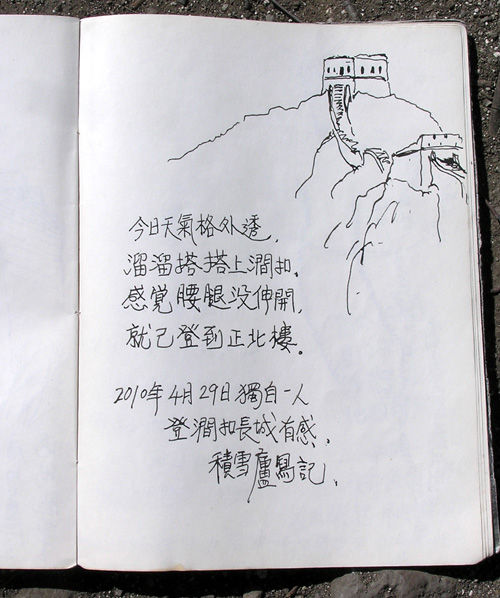 今日天氣格外透,
溜溜搭搭上澗扣。
感覚腰腿没伸開,
就已登到正北樓。
2010年4月29日獨自一人
登澗扣長城有感、
積雪廬寫記、